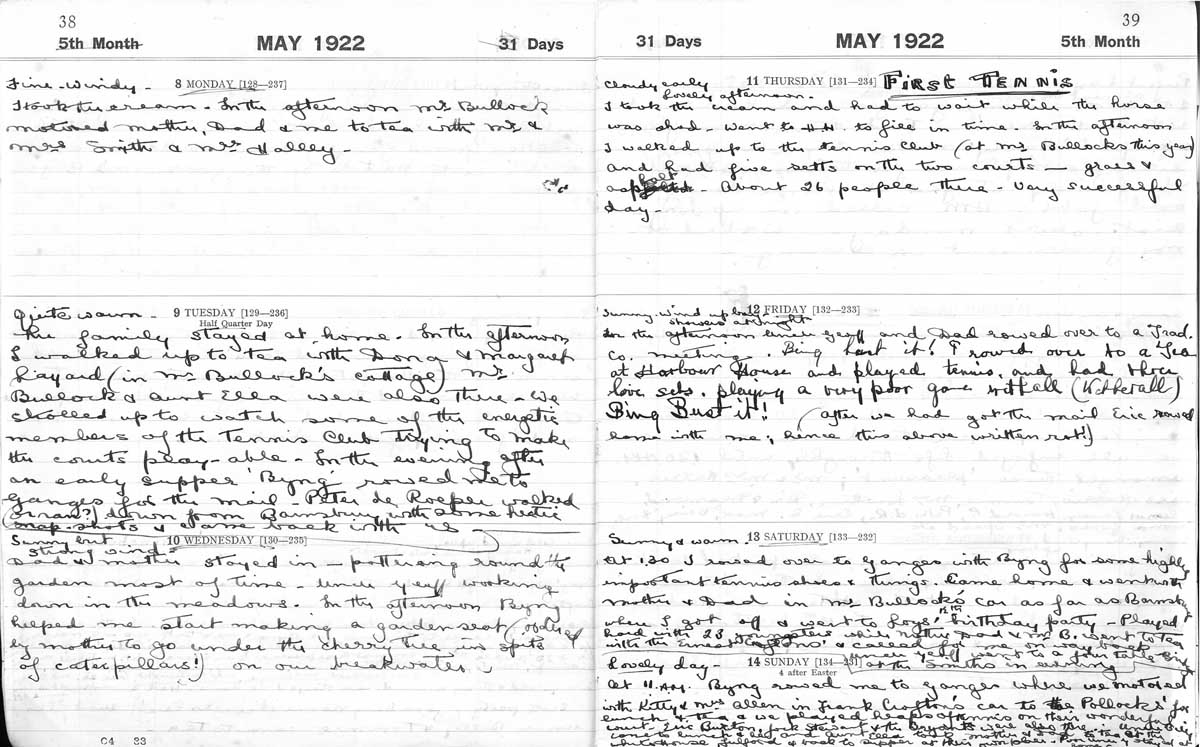 38
5th Month MAY 1922 31 Days
Fine - Windy - 8 MONDAY [128—237]
I took the cream - In the afternoon Mr Bullock
motored mother, Dad & me to tea with Mr &
Mrs Smith & Mrs Halley -
Quite warm - 9 TUESDAY [129—236]
Half Quarter Day
The family stayed at home - In the afternoon
I walked up to tea with Dona & Margaret
Layard (in Mr Bullock's cottage) Mr.
Bullock & Aunt Ella were also there - We
strolled up to watch some of the energetic
members of the Tennis Club trying to make
the courts play-able - In the evening after
an early supper 'Byng' rowed me to
Ganges for the mail - Peter de Roeper walked
down from Barnsbury with some hectic
snap-shots & came back with us
Sunny but 10 WEDNESDAY [130—235]
strong wind -
Dad & mother stayed in - pottering round the
garden most of time Uncle Geoff working
down in the meadows. In the afternoon Byng
helped me start making a garden seat (ordered
by mother to go under the cherry tree in spite
of caterpillars!) on our breakwater.
C4 33
39
31 Days MAY 1922 5th Month
Cloudy early 11 THURSDAY [131—234] FIRST TENNIS
lovely afternoon.
I took the cream and had to wait while the horse
was shod - Went to H.H. to fill in time. In the afternoon
I walked up to the Tennis Club (at Mr Bullocks this year)
and had five setts on the two courts - grass &
asphalt - About 26 people there - Very successful
day -
12 FRIDAY [132—233]
Sunny, wind up but
showers at night
In the afternoon Uncle Geoff and Dad rowed over to a Trad.
Co. meeting. Bing bust it! I rowed over to a Tea
at Harbour House and played tennis, and had three
love sets, playing a very poor game with
Bing Bust it! (after we had got the mail Eric rowed
home with me; hence this above written rot!)
Sunny & warm - 13 SATURDAY [133—232]
At 1.30 I rowed over to Ganges with Byng for some highly
important tennis shoes & things. Came home & went with
mother & Dad in Mr Bullock's car as far as Barnsbury
where I got off & went to boys' birthday party - Played
hard with 23 youngsters while Mother Dad & Mr B. went to tea
with the Ernest & called for me on way back
Lovely day - 14 SUNDAY [134—231] at the Smiths in evening
4 after Easter
At 11 A.M. Byng rowed me to Ganges where we motored
with Kitty & Mrs Allen in Frank Crofton's car to the Pollocks' for
lunch & tea & we played heaps of tennis on their wonderful
court.